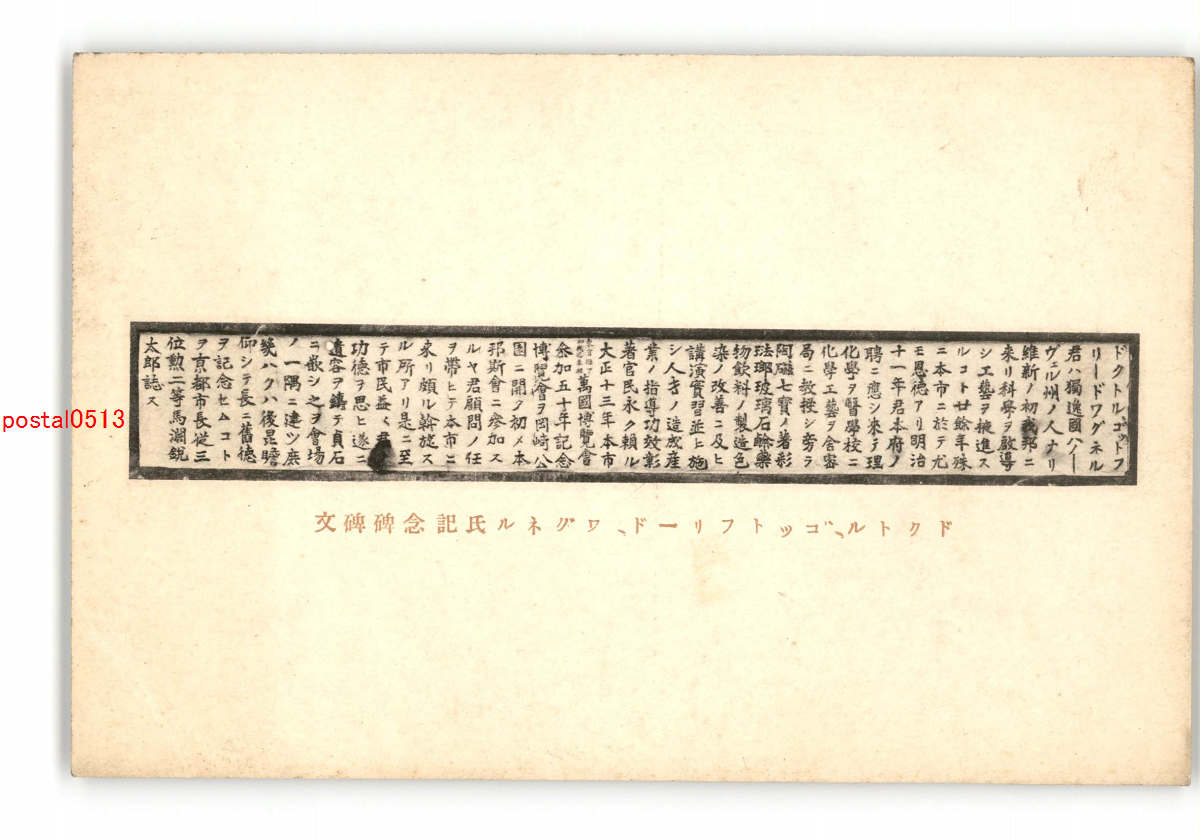 ドクトルゴットフ
リードワグネル
君ハ獨逸國ハノー
ヴェル州ノ人ナリ
維新ノ初我邦ニ
來リ科學ヲ啟導
シ工藝ヲ掖進ス
ルコト廿餘年殊
ニ本市ニ於テ尤
モ恩德アリ明治
十一年君本府ノ
聘ニ應シ來テ理
化學ヲ醫學校ニ
化學工藝ヲ舍密
局ニ敎授シ旁ラ
陶磁七寶ノ著彩
琺瑯玻璃石鹼藥
物飮料ノ製造色
染ノ改善ニ及ヒ
講演實習並ヒ施
シ人才ノ造成產
業ノ指導功效彰
著官民永ク賴ル
大正十三年本市
萬國博覽會
參加五十年記念
博覽會ヲ岡崎公
園ニ開ク初メ本
邦斯會ニ參加ス
ルヤ君顧問ノ任
ヲ帶ヒテ本市ニ
來リ頗ル斡旋ス
ル所アリ是ニ至
テ市民益々君
功德ヲ思ヒ遂ニ
遺容ヲ鑄テ貞石
ニ嵌シ之ヲ會場
ノ一隅ニ建ツ庶
幾ハクハ後昆瞻
仰シテ長ニ舊德
ヲ記念セムコト
ヲ京都市長從三
位勲二等馬淵銳
太郎誌ス
ドクトル、ゴットフリード、ワグネル氏記念碑碑文
postal0513